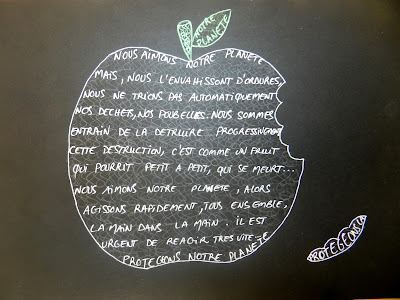 NOTRE
PLANETE
NOUS AIMONS NOTRE PLANETE
MAIS, NOUS L'ENVAHISSONT D'ORDURES
NOUS NE TRIONS PAS AUTOMATIQUEMENT
NOS DECHETS, NOS POUBELLES. NOUS SOMMES
ENTRAIN DE LA DETRUIRE PROGRESSIVEMENT
CETTE DESTRUCTION, C'EST COMME UN FRUIT
QUI POURRIT PETIT A PETIT, QUI SE MEURT...
NOUS AIMONS NOTRE PLANETE, ALORS
AGISSONS RAPIDEMENT, TOUS ENSEMBLE,
LA MAIN DANS LA MAIN. IL EST
URGENT DE REAGIR TRES VITE
PROTEGHONS NOTRE PLANETE